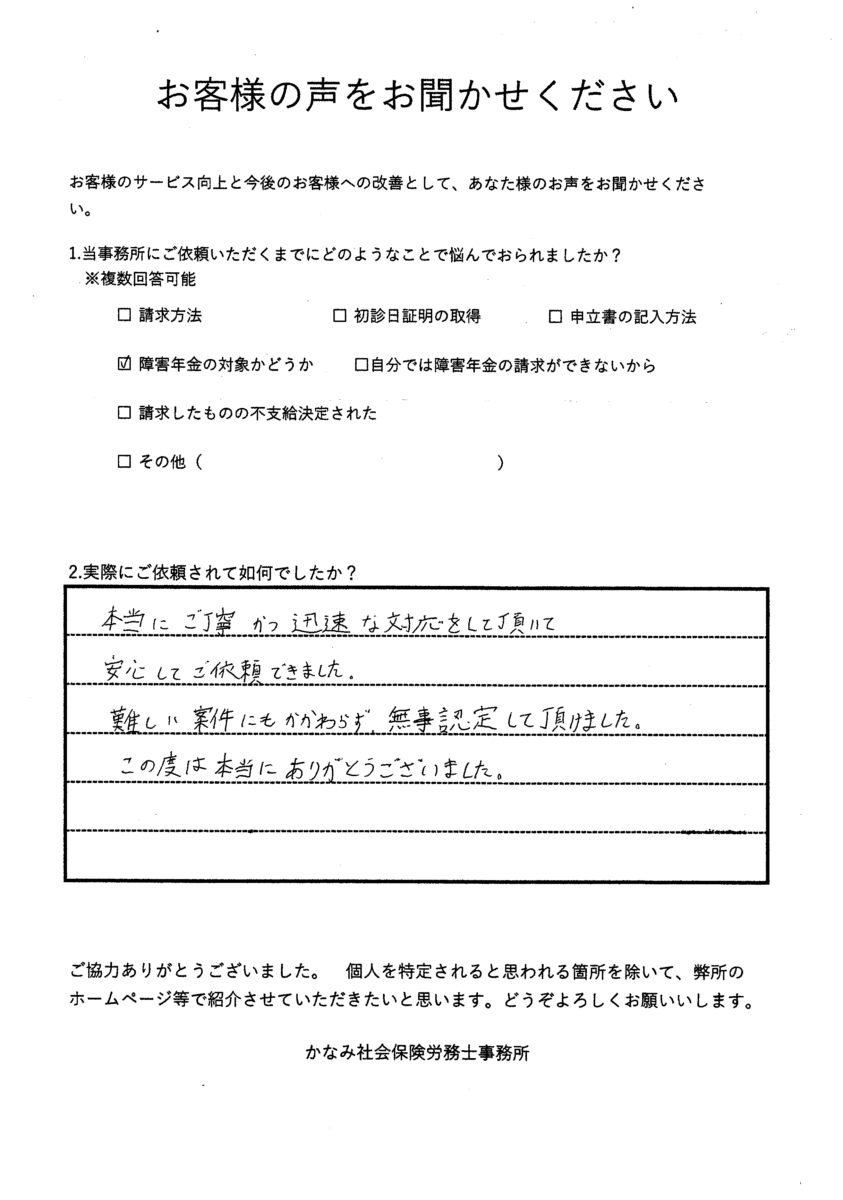 お客様の声をお聞かせください
お客様のサービス向上と今後のお客様への改善として、あなた様のお声をお聞かせくださ
い。
1.当事務所にご依頼いただくまでにどのようなことで悩んでおられましたか？
※複数回答可能
☐ 請求方法 ☐ 初診日証明の取得 ☐ 申立書の記入方法
☑ 障害年金の対象かどうか ☐自分では障害年金の請求ができないから
☐ 請求したものの不支給決定された
☐ その他（ ）
2.実際にご依頼されて如何でしたか？
本当にご丁寧かつ迅速な対応をして頂いて
安心してご依頼できました。
難しい案件にもかかわらず、無事認定して頂けました。
この度は本当にありがとうございました。
ご協力ありがとうございました。　個人を特定されると思われる箇所を除いて、弊所の
ホームページ等で紹介させていただきたいと思います。どうぞよろしくお願いいします。
かなみ社会保険労務士事務所